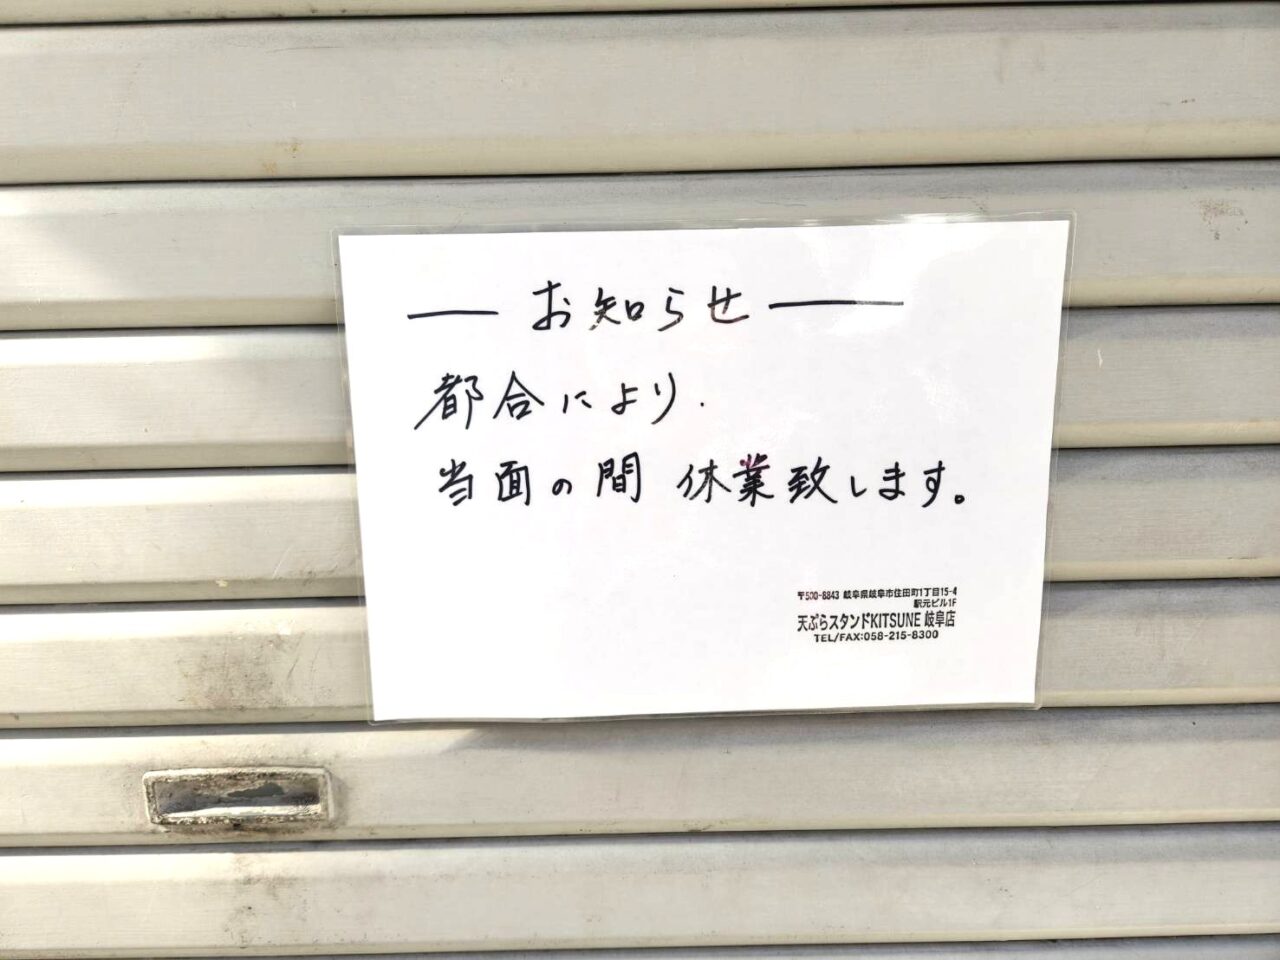 ― お知らせ ―
都合により.
当面の間 休業致します。
〒500-8843 岐阜県岐阜市住田町1丁目15-4
駅元ビル1F
天ぷらスタンドKITSUNE 岐阜店
TEL/FAX:058-215-8300